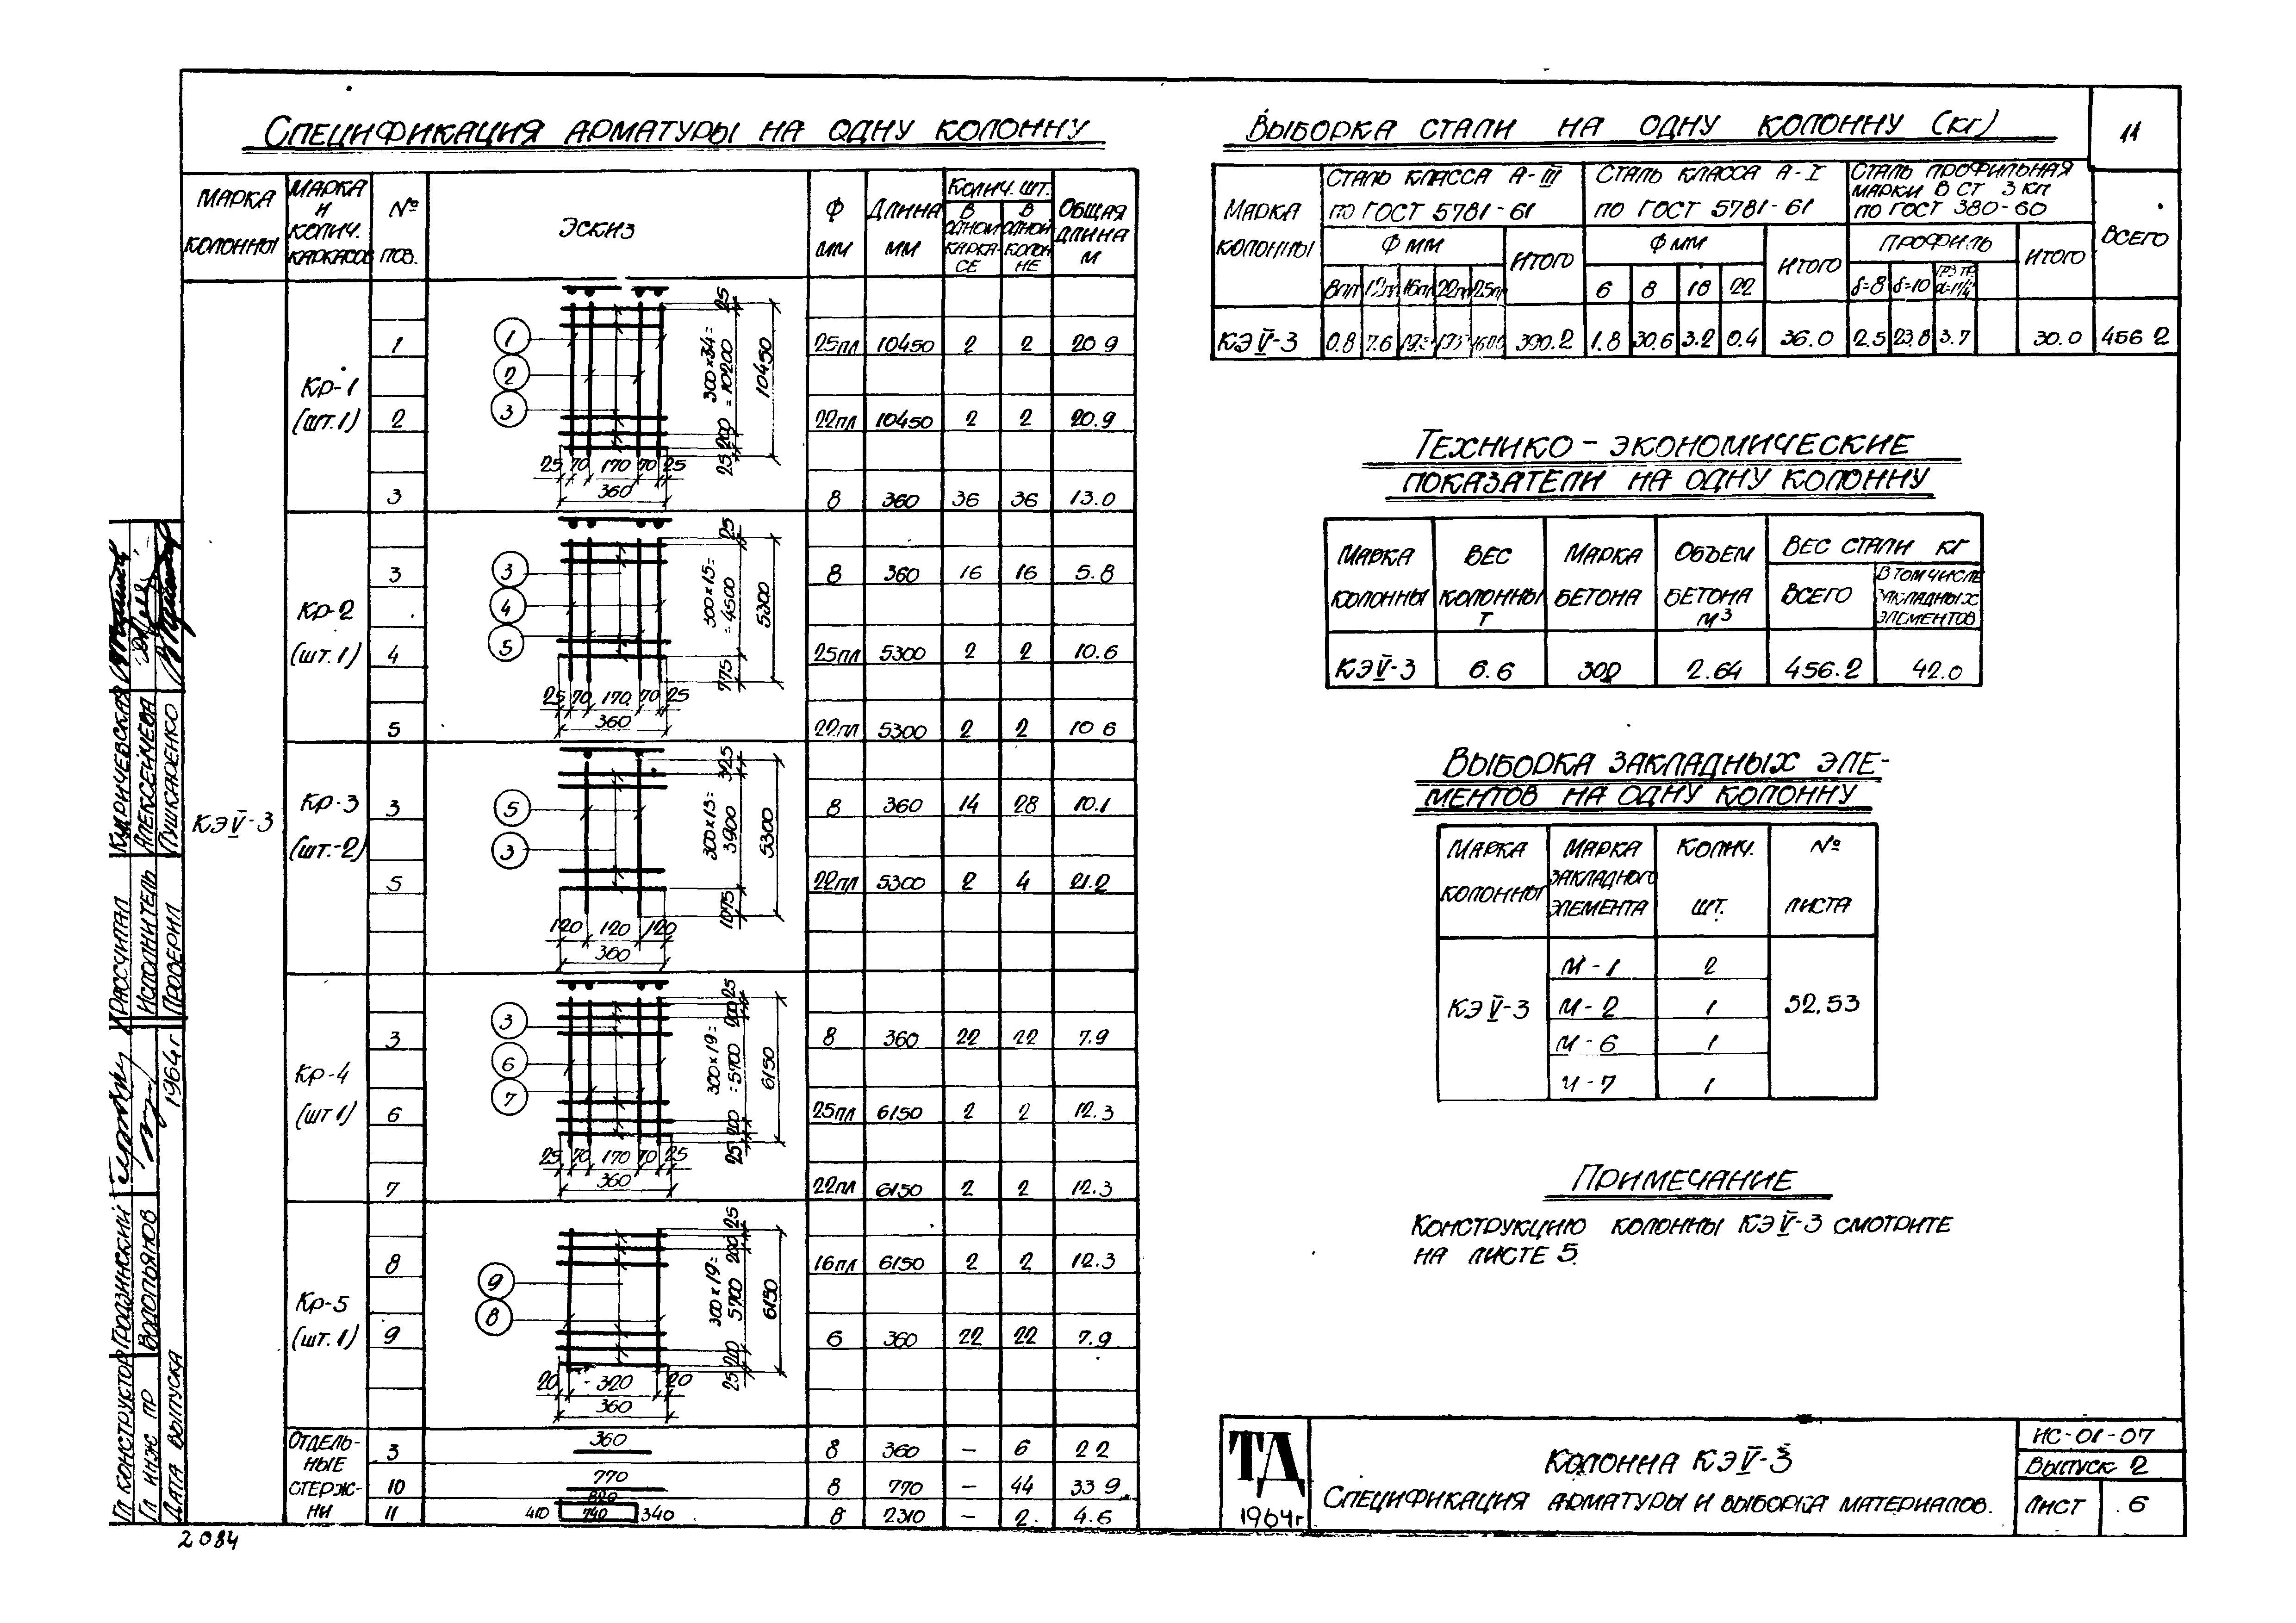 11
Спецификация арматуры на одну колонну
Марка колонны | Марка и колич. каркасов | № поз. | Эскиз | Ф мм | Длина мм | Колич. шт. | Общая длина м
в одном каркасе | в одной колонне
КЭV-3
Кр-1 (шт.1)
1 | 25пл | 10450 | 2 | 2 | 20.9
2 | 22пл | 10450 | 2 | 2 | 20.9
3 | 8 | 360 | 36 | 36 | 13.0
1 2 3
25 70 170 70 25
360
25 300x34= =10200 200 25
10450
Кр-2 (шт.1)
3 | 8 | 360 | 16 | 16 | 5.8
4 | 25пл | 5300 | 2 | 2 | 10.6
5 | 22пл | 5300 | 2 | 2 | 10 6
3 4 5
25 70 170 70 25
360
25 300x15= =4500 775
5300
Кр-3 (шт.-2)
3 | 8 | 360 | 14 | 28 | 10.1
5 | 22пл | 5300 | 2 | 4 | 21.2
5 3
120 120 120
360
325 300x13= 3900 1075
5300
Кр-4 (шт 1)
3 | 8 | 360 | 22 | 22 | 7.9
6 | 25пл | 6150 | 2 | 2 | 12.3
7 | 22пл | 6150 | 2 | 2 | 12.3
3 6 7
25 70 170 70 25
360
25 200 300x19= =5700 200 25
6150
Кр-5 (шт.1)
8 | 16пл | 6150 | 2 | 2 | 12.3
9 | 6 | 360 | 22 | 22 | 7.9
9 8
20 320 20
360
25 200 300x19= 5700 200 25
6150
Отдельные стержни
3 | 360 | 8 | 360 | — | 6 | 2 2
10 | 770 | 8 | 770 | — | 44 | 33 9
11 | 410 740 340 | 8 | 2310 | — | 2. | 4.6
Выборка стали на одну колонну (кг)
Марка колонны | Сталь класса А-III по ГОСТ 5781-61 | Сталь класса А-I по ГОСТ 5781-61 | Сталь профильная марки В Ст 3 кп по ГОСТ 380-60 | Всего
Ф мм | Итого | Ф мм | Итого | Профиль | Итого
8пл 12пл 16пл 22пл 25пл | 6 8 18 22 | δ=8 δ=10
КЭV-3 | 0.8 | 7.6 | 390.2 | 1.8 | 30.6 | 3.2 | 0.4 | 36.0 | 2.5 | 23.8 | 3.7 | 30.0 | 456 2
Технико-экономические
показатели на одну колонну
Марка колонны | Вес колонны т | Марка бетона | Объем бетона м³ | Вес стали кг
Всего | В том числе закладных элементов
КЭV-3 | 6.6 | 300 | 2.64 | 456.2 | 42.0
Выборка закладных эле-
ментов на одну колонну
Марка колонны | Марка закладного элемента | Колич. шт. | № листа
КЭV-3 | М-1 | 2 | 52,53
М-2 | 1
М-6 | 1
М-7 | 1
Примечание
Конструкцию колонны КЭV-3 смотрите
на листе 5.
ТД
1964г
Колонна КЭV-3
Спецификация арматуры и выборка материалов.
ИС-01-07
Выпуск 2
Лист 6
Гл конструктор Гродзинский
Гл. инж пр Водопьянов
Дата выпуска 1964г
Расчитал
Исполнитель Алексейчева
Проверил Пушкаренко
2084